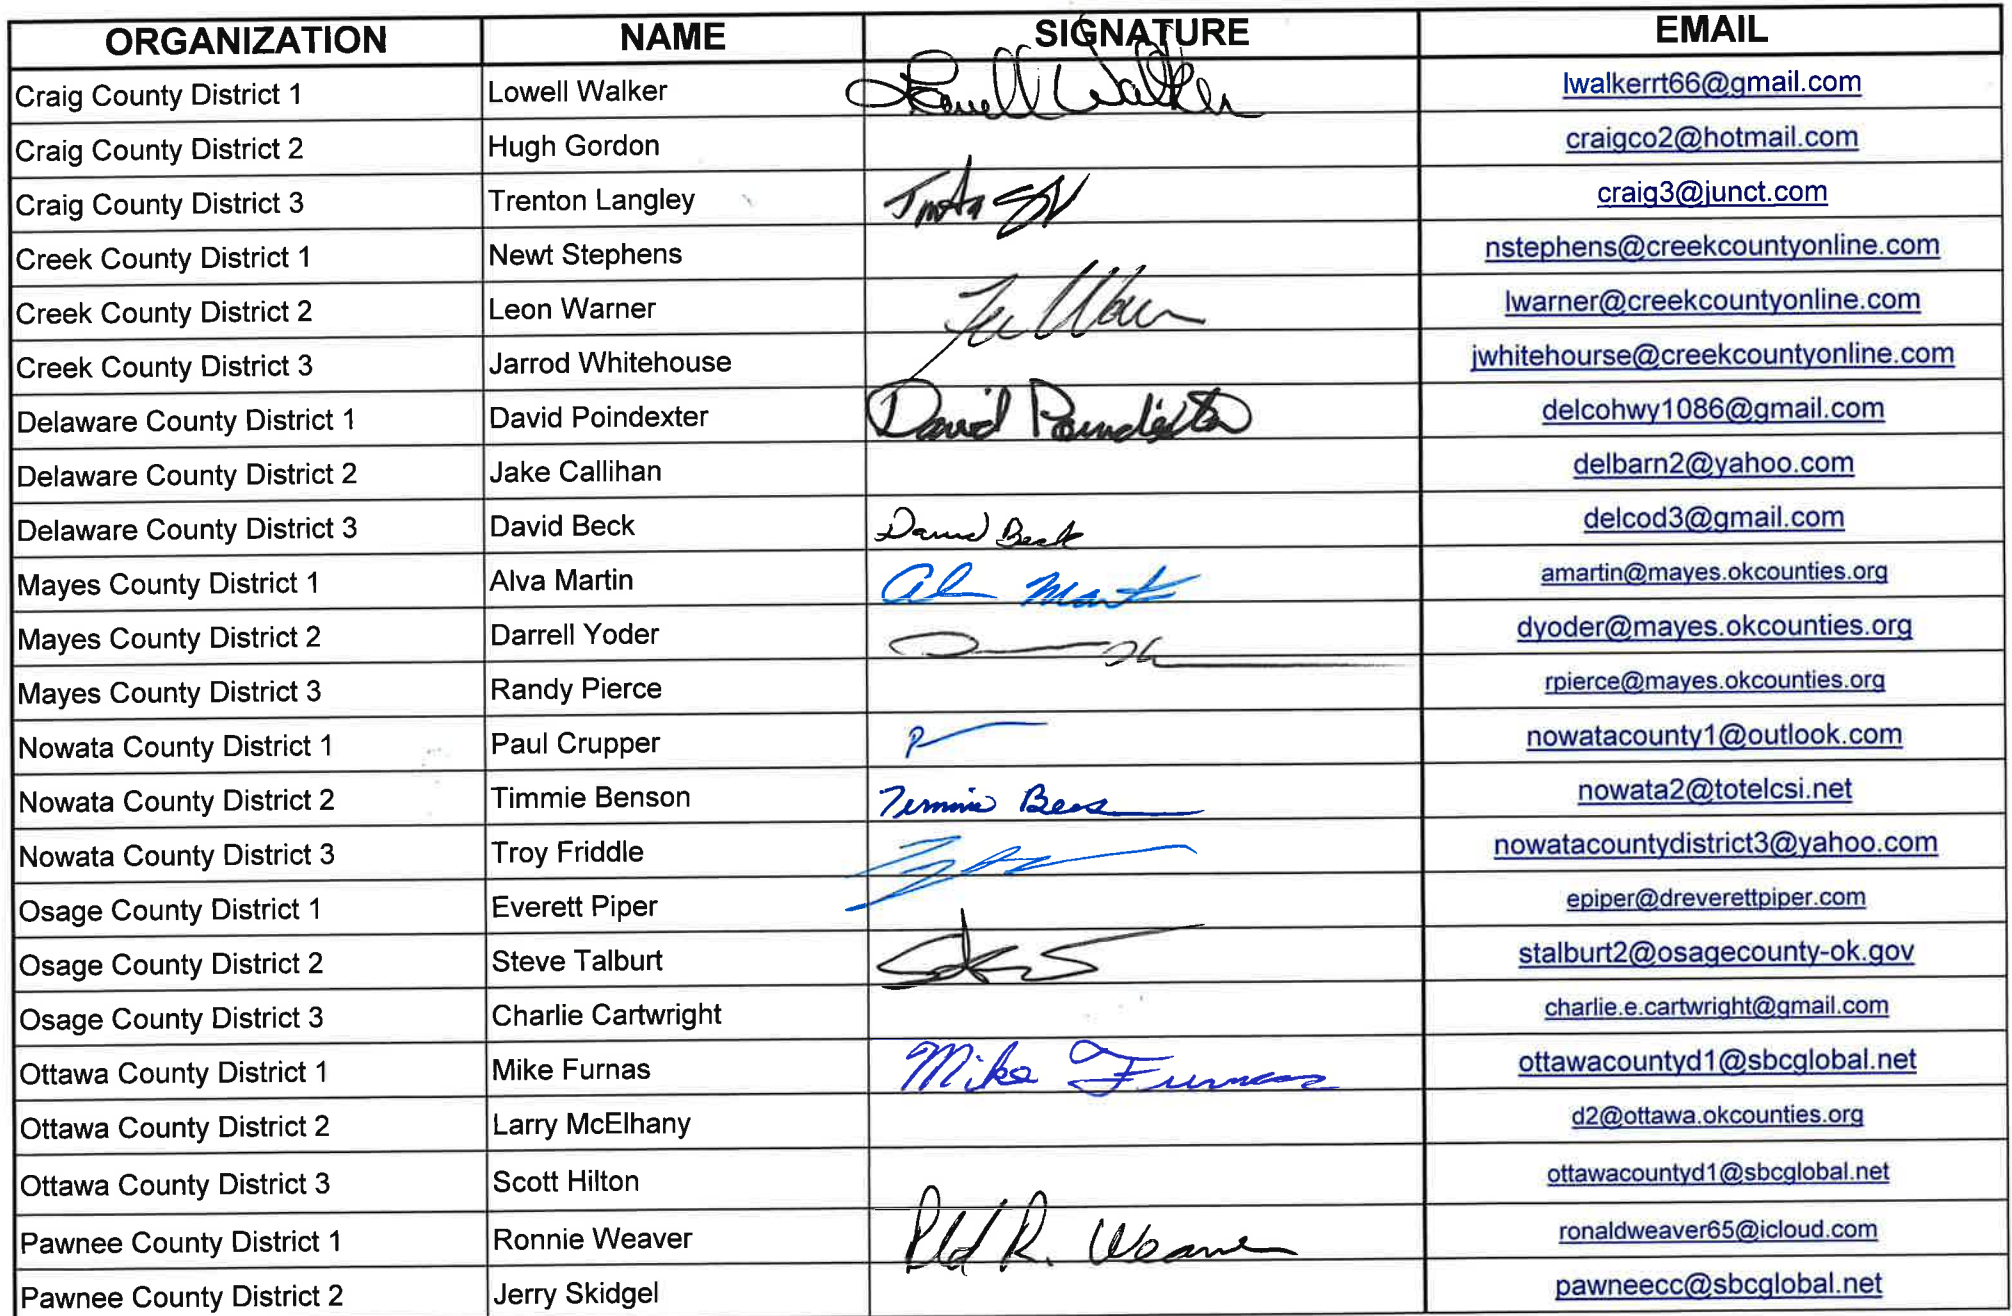 ORGANIZATION NAME SIGNATURE EMAIL
Craig County District 1 Lowell Walker Lowell Walker lwalkerrt66@gmail.com
Craig County District 2 Hugh Gordon craigco2@hotmail.com
Craig County District 3 Trenton Langley craig3@junct.com
Creek County District 1 Newt Stephens nstephens@creekcountyonline.com
Creek County District 2 Leon Warner lwarner@creekcountyonline.com
Creek County District 3 Jarrod Whitehouse jwhitehourse@creekcountyonline.com
Delaware County District 1 David Poindexter David Poindexter delcohwy1086@gmail.com
Delaware County District 2 Jake Callihan delbarn2@yahoo.com
Delaware County District 3 David Beck David Beck delcod3@gmail.com
Mayes County District 1 Alva Martin amartin@mayes.okcounties.org
Mayes County District 2 Darrell Yoder dyoder@mayes.okcounties.org
Mayes County District 3 Randy Pierce rpierce@mayes.okcounties.org
Nowata County District 1 Paul Crupper nowatacounty1@outlook.com
Nowata County District 2 Timmie Benson nowata2@totelcsi.net
Nowata County District 3 Troy Friddle nowatacountydistrict3@yahoo.com
Osage County District 1 Everett Piper epiper@dreverettpiper.com
Osage County District 2 Steve Talburt stalburt2@osagecounty-ok.gov
Osage County District 3 Charlie Cartwright charlie.e.cartwright@gmail.com
Ottawa County District 1 Mike Furnas Mike Furnas ottawacountyd1@sbcglobal.net
Ottawa County District 2 Larry McElhany d2@ottawa.okcounties.org
Ottawa County District 3 Scott Hilton ottawacountyd1@sbcglobal.net
Pawnee County District 1 Ronnie Weaver R. Weaver ronaldweaver65@icloud.com
Pawnee County District 2 Jerry Skidgel pawneecc@sbcglobal.net